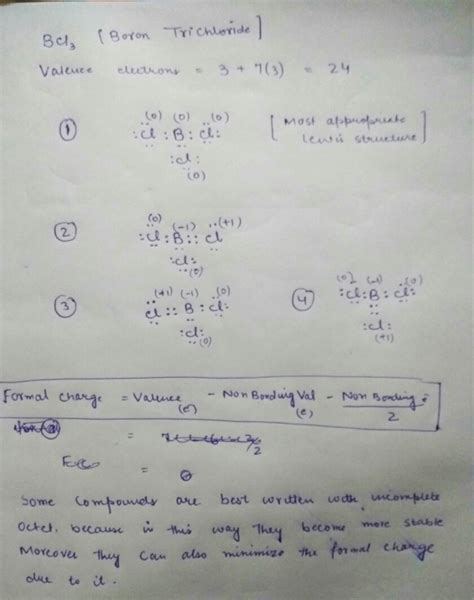 BCl3 [Boron Trichloride]
Valence electrons = 3 + 7(3) = 24
① (0) (0) (0)
:Cl : B : Cl: [Most appropriate
:Cl: Lewis structure]
(0)
② (0) (-1) (+1)
:Cl : B :: Cl
:Cl:
(0)
③ (+1) (-1) (0) ④ (0) (-1) (0)
Cl :: B : Cl: :Cl : B : Cl:
:Cl: (0) :Cl:
(+1)
Formal charge = Valence (e-) - NonBonding Val (e) - Non Bonding e-
2
=
= 0
Some compounds are best written with incomplete
octet, because in this way they become more stable
Moreover they can also minimize the formal charge
due to it.